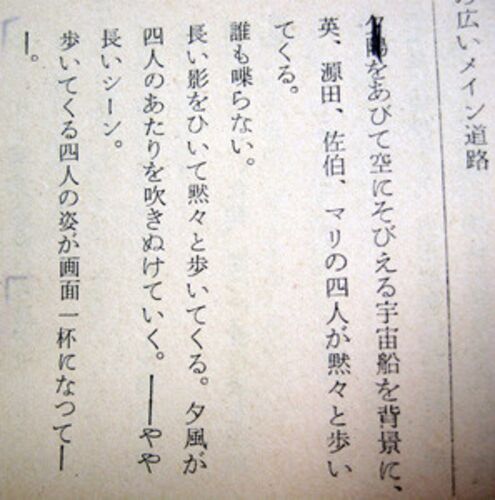 広いメイン道路
夕陽をあびて空にそびえる宇宙船を背景に、
英、源田、佐伯、マリの四人が黙々と歩い
てくる。
誰も喋らない。
長い影をひいて黙々と歩いてくる。夕風が
四人のあたりを吹きぬけていく。――やや
長いシーン。
歩いてくる四人の姿が画面一杯になつて―
―。